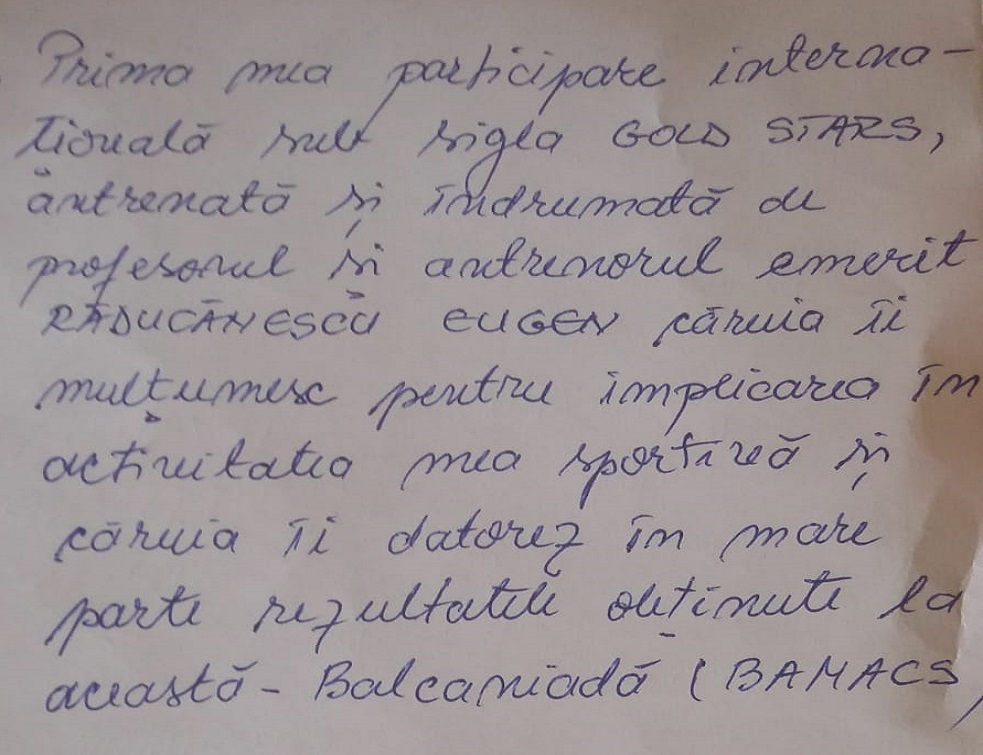 Prima mea participare interna-
țională sub sigla GOLD STARS,
antrenată și îndrumată de
profesorul și antrenorul emerit
RĂDUCĂNESCU EUGEN căruia îi
mulțumesc pentru implicarea în
activitatea mea sportivă și
căruia îi datorez în mare
parte rezultatele obținute la
această - Balcaniadă (BAMACS)